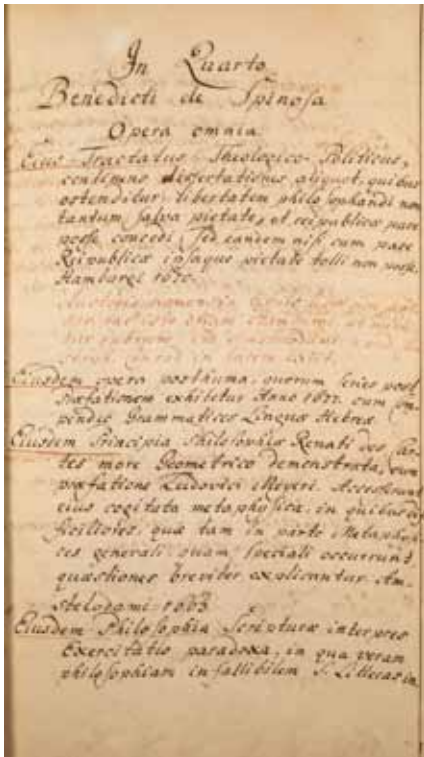 In Quarto
Benedicti de Spinosa
Opera omnia
Eius Tractatus Theologico-Politicus,
continens dissertationes aliquot, quibus
ostenditur libertatem philosophandi non
tantum salva pietate, et reipublicæ pace
posse concedi sed eandem nisi cum pace
Reipublicæ ipsaque pietate tolli non posse.
Hamburgi 1670.
Eiusdem opera posthuma, quorum series post
præfationem exhibetur Anno 1677. cum Com-
pendio Grammatices Linguæ Hebreæ
Eiusdem Principia Philosophiæ Renati des Car-
tes more Geometrico demonstrata, cum
præfatione Ludovici Meyeri. Accesserunt
eius cogitata metaphysica, in quibus dif-
ficiliores, quæ tam in parte Metaphysi-
ces generali quam speciali occurrunt
quæstiones breviter explicantur. Am-
stelodami 1663
Eiusdem Philosophia Scripturæ interpres
Exercitatio paradoxa, in qua veram
philosophiam infallibilem S. Litteras in,